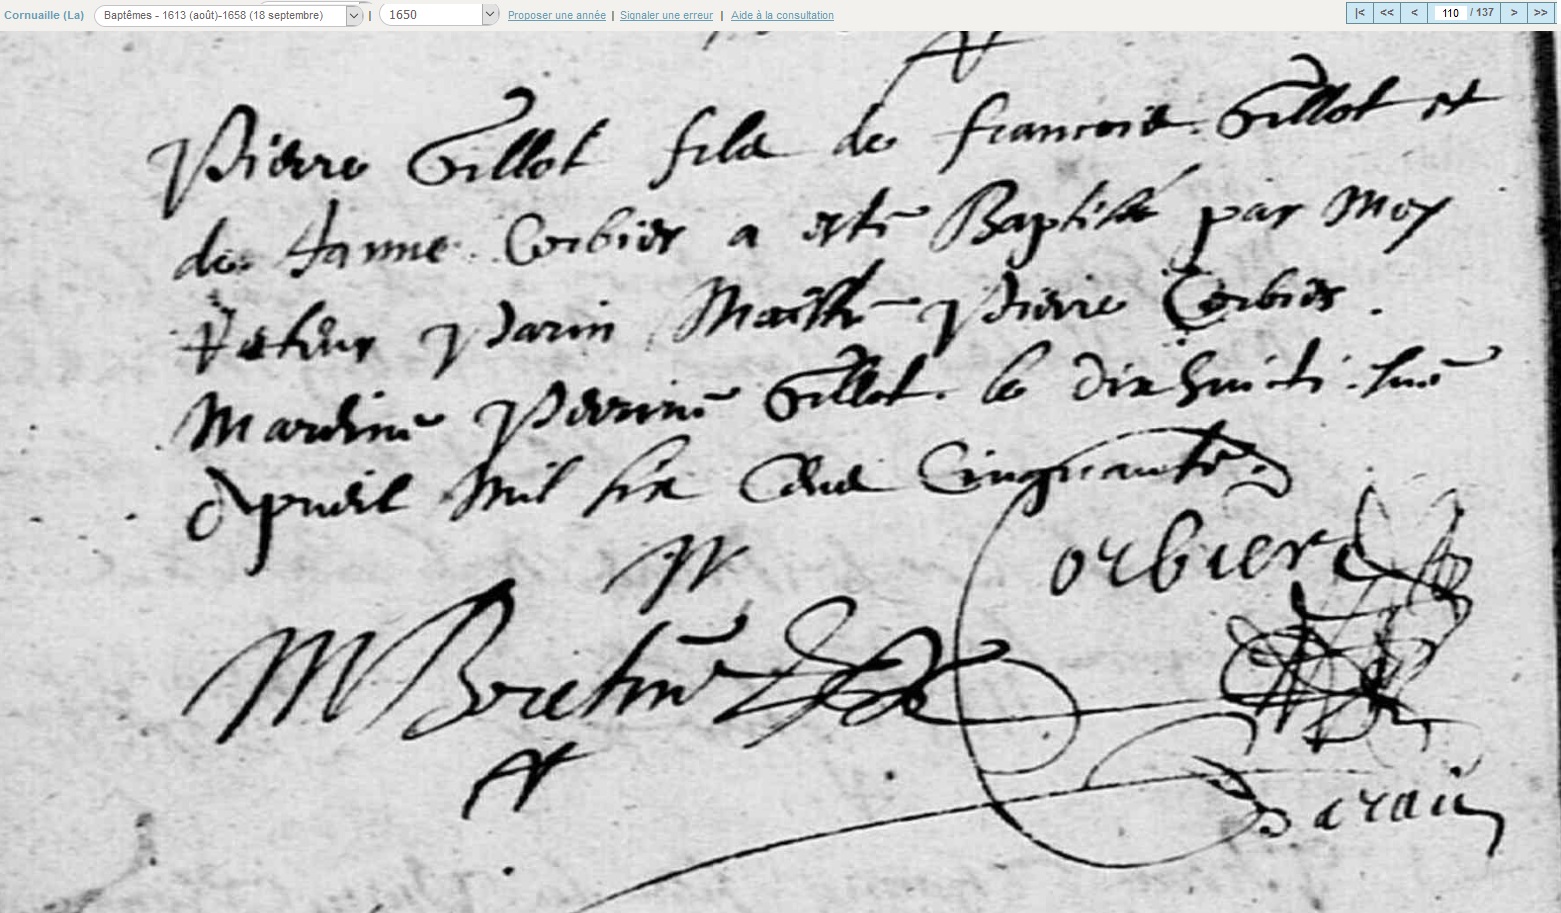 Cornuaille (La) Baptêmes - 1613 (août)-1658 (18 septembre) | 1650 Proposer une année | Signaler une erreur | Aide à la consultation |< << < 110 / 137 > >>
Pierre Gillot filz de francois Gillot et
de Janne Corbier a esté Baptissé par Moy
parin Maistre Pierre Corbier.
Mardinne Perrinne Gillot. le dixhuicti.
Apvril Mil six Cens Cinquante.
Corbiere
M Breton